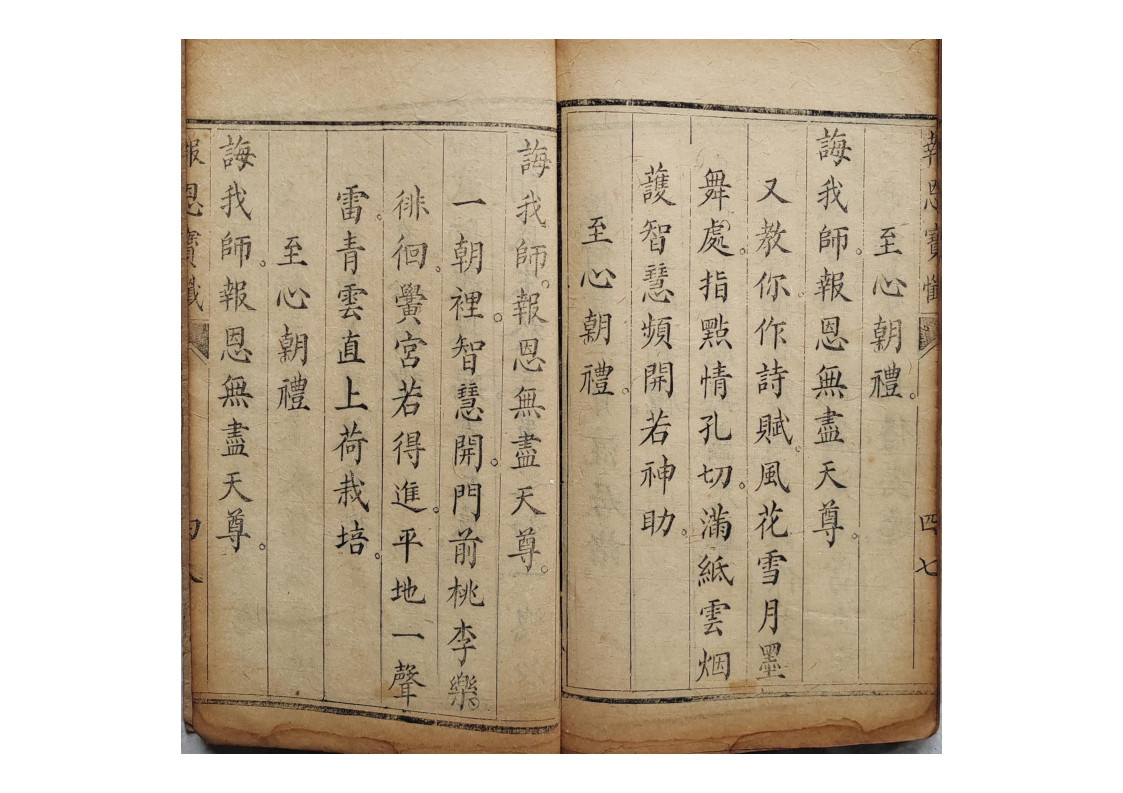 報恩寶懺 四七
至心朝禮。
誨我師。報恩無盡天尊。
又教你。作詩賦。風花雪月墨
舞處。指點情孔切。滿紙雲烟
護智慧頻開若神助。
至心朝禮。
誨我師。報恩無盡天尊。
一朝裡。智慧開。門前桃李樂。
徘徊。黌宮若得進。平地一聲
雷。青雲直上荷栽培。
至心朝禮
誨我師。報恩無盡天尊。
報恩寶懺 四八